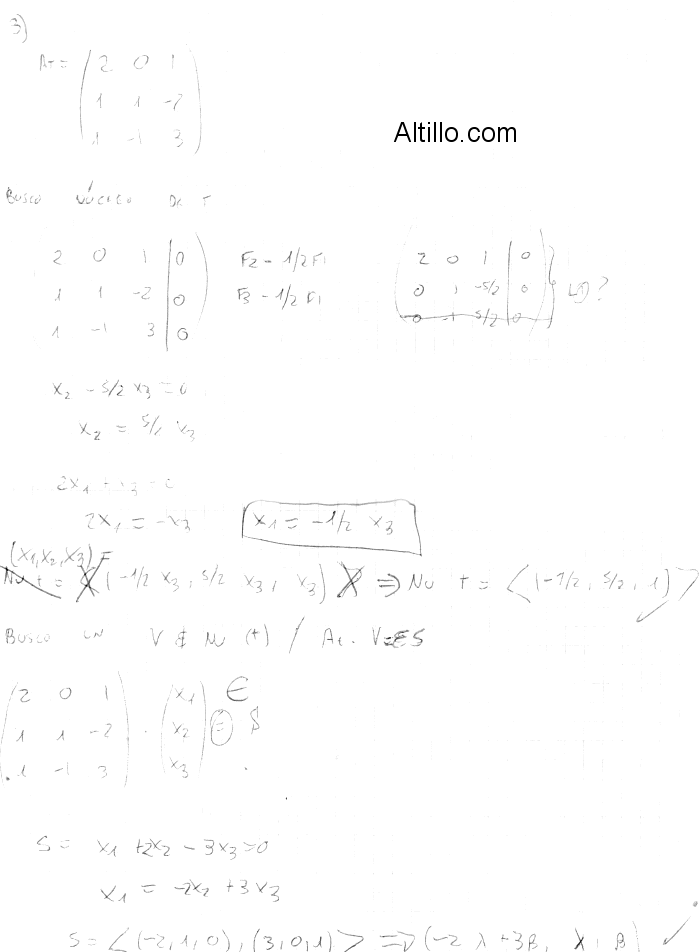 3)
AT = ( 2 0 1
1 1 -2
1 -1 3 )
Altillo.com
BUSCO NÚCLEO DE T
2 0 1 | 0
1 1 -2 | 0
1 -1 3 | 0
F2 - 1/2 F1
F3 - 1/2 F1
2 0 1 | 0
0 1 -5/2 | 0
0 -1 5/2 | 0
LD ?
x2 - 5/2 x3 = 0
x2 = 5/2 x3
2x1 + x3 = 0
2x1 = -x3
x1 = -1/2 x3
(x1, x2, x3) =
Nu t = (-1/2 x3, 5/2 x3, x3) => Nu t = < (-1/2, 5/2, 1) >
BUSCO UN V ∉ Nu (t) / AT . V = ES
( 2 0 1
1 1 -2
1 -1 3 ) . ( x1
x2
x3 ) = ∈ S
S = x1 + 2x2 - 3x3 = 0
x1 = -2x2 + 3x3
S = < (-2, 1, 0), (3, 0, 1) > => (-2λ + 3β, λ, β)